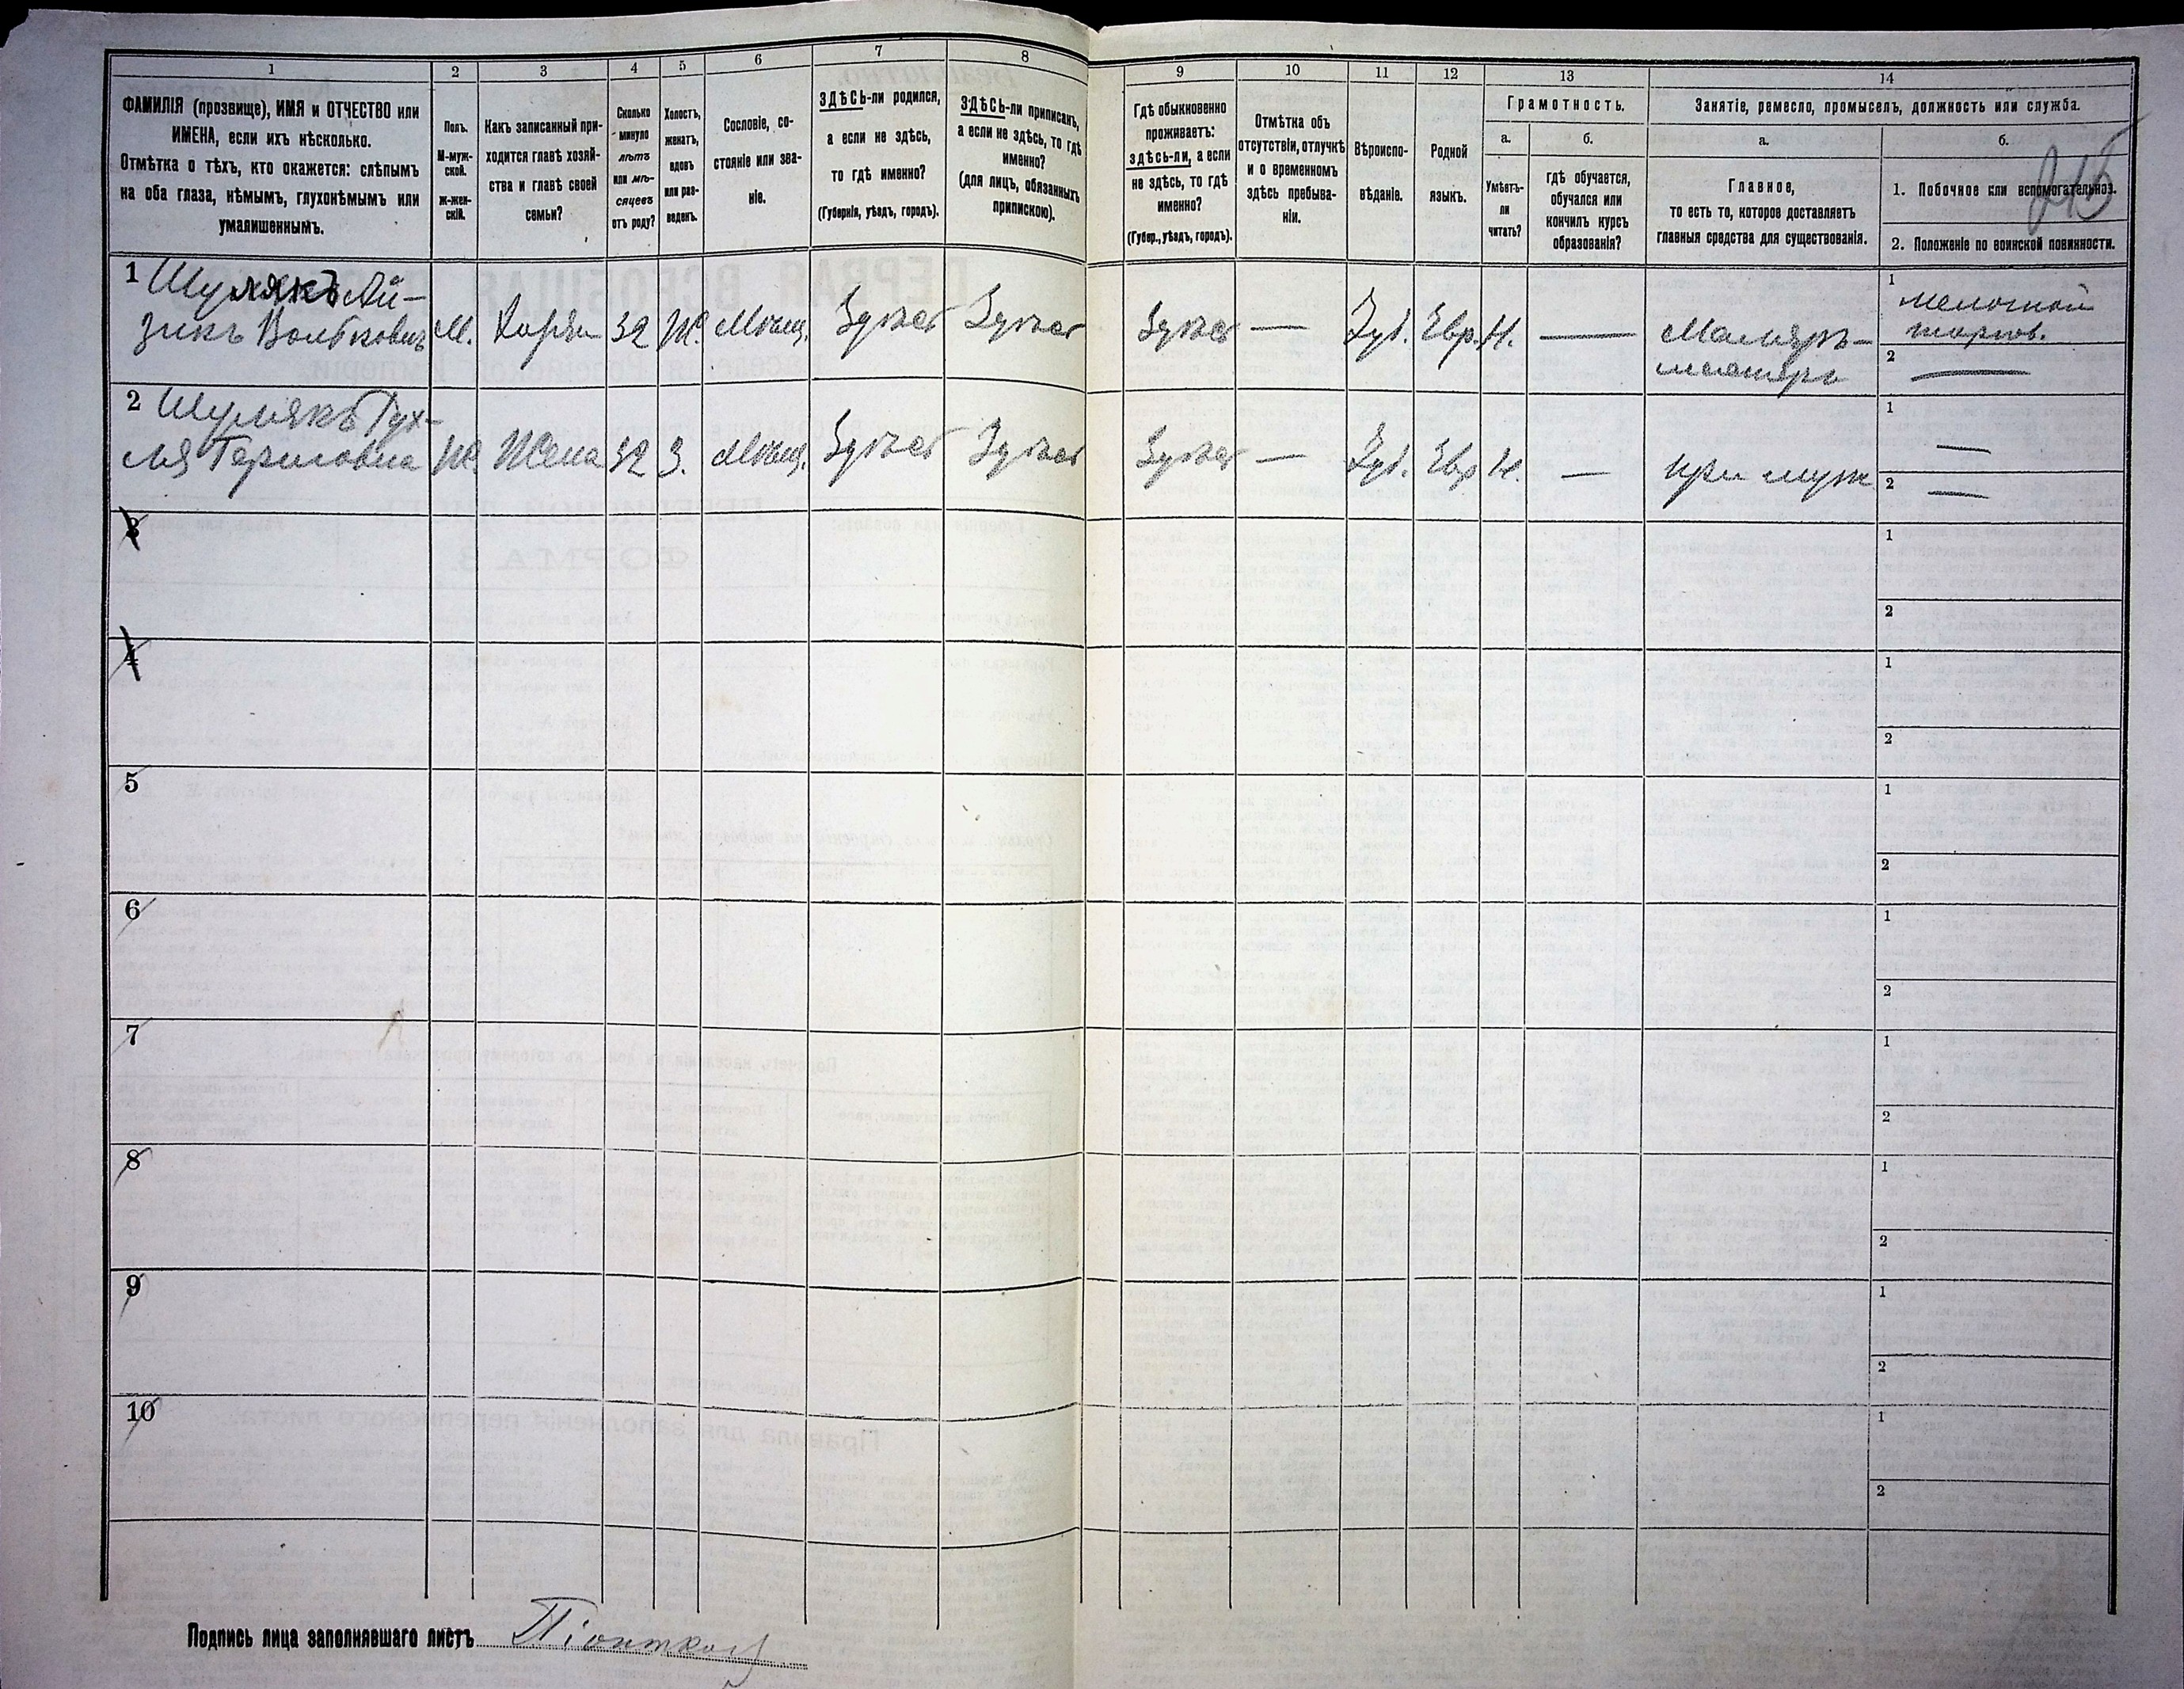 1 2 3 4 5 6 7 8 9 10 11 12 13 14
ФАМИЛІЯ (прозвище), ИМЯ и ОТЧЕСТВО или
ИМЕНА, если ихъ нѣсколько.
Отмѣтка о тѣхъ, кто окажется: слѣпымъ
на оба глаза, нѣмымъ, глухонѣмымъ или
умалишеннымъ.
Полъ.
М-муж-
ской.
ж-жен-
скій.
Какъ записанный при-
ходится главѣ хозяй-
ства и главѣ своей
семьи?
Сколько
минуло
лѣтъ
или мѣ-
сяцевъ
отъ роду?
Холостъ,
женатъ,
вдовъ
или раз-
веденъ.
Сословіе, со-
стояніе или зва-
ніе.
ЗДѢСЬ-ли родился,
а если не здѣсь,
то гдѣ именно?
(Губернія, уѣздъ, городъ).
ЗДѢСЬ-ли приписанъ,
а если не здѣсь, то гдѣ
именно?
(для лицъ, обязанныхъ
припискою).
Гдѣ обыкновенно
проживаетъ:
здѣсь-ли, а если
не здѣсь, то гдѣ
именно?
(Губер., уѣздъ, городъ).
Отмѣтка объ
отсутствіи, отлучкѣ
и о временномъ
здѣсь пребыва-
ніи.
Вѣроиспо-
вѣданіе.
Родной
языкъ.
Грамотность.
а.
Умѣетъ-
ли
читать?
б.
гдѣ обучается,
обучался или
кончилъ курсъ
образованія?
Занятіе, ремесло, промыселъ, должность или служба.
а.
Главное,
то есть то, которое доставляетъ
главныя средства для существованія.
б.
1. Побочное или вспомогательное.
2. Положеніе по воинской повинности.
215
1 Шулякъ Ай-
зикъ Волбковичъ М. Хозяи 32 Ж. Мѣщ. Здѣсь Здѣсь Здѣсь — Іуд. Евр. Н. — Маляръ-
маляръ
1 мелочной
торгов.
2 —
2 Шулякъ Рух-
ля Гершовна Ж. Жена 32 З. Мѣщ. Здѣсь Здѣсь Здѣсь — Іуд. Евр Н. — при муж
1 —
2 —
3 1
2
4 1
2
5 1
2
6 1
2
7 1
2
8 1
2
9 1
2
10 1
2
Подпись лица заполнявшаго листъ